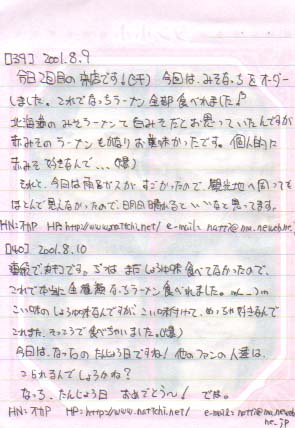 [139] 2001.8.9
今日2回目の来店です!(汗) 今回は、みそなっちをオーダー
しました。これでなっちラーメン全部食べれました♪
北海道のみそラーメンて白みそだとお思っていたんですが
赤みそのラーメンもかなりお美味かったです。個人的に
赤みそ好きなんで...(爆)
それと、今日は雨雲ガスが すごかったので、観光地へ回っても
ほとんど見えなかったので、明日晴れるといいなと思ってます。
HN:オカP HP:http://www.nattchi.net/ e-mail: natti@ma.neweb.ne.jp
[140] 2001.8.10
です。じつは まだしょうゆ味食べてなかったので、
これで本当に全種類なっちラーメン食べれました。m(_)m
こい味のしょうゆ味なんですが、こい味付けて、めっちゃ好きなんで
これまた、そっこうで食べちゃいました。(爆)
今日は、なっちのたんじょう日ですね! 他のファンの人達は、
こられるんでしょうかね?
なっち、たんじょう日 おめでとう〜! では。
HN:オカP HP:http://www.nattchi.net/ e-mail: natti@ma.neweb.ne.jp